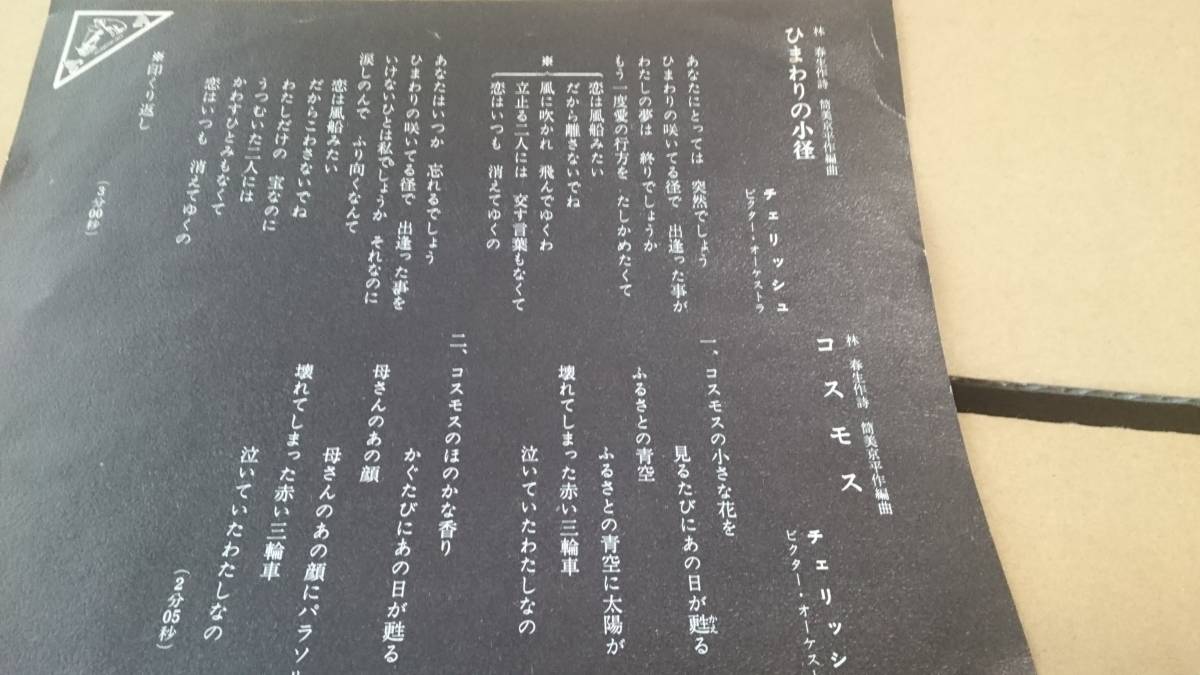 林 春生作詩 筒美京平作編曲
ひまわりの小径
チェリッシュ
ビクター・オーケストラ
あなたにとっては 突然でしょう
ひまわりの咲いてる径で 出逢った事が
わたしの夢は 終りでしょうか
もう一度愛の行方を たしかめたくて
※
恋は風船みたい
だから離さないでね
風に吹かれ 飛んでゆくわ
立止る二人には 交す言葉もなくて
恋はいつも 消えてゆくの
あなたはいつか 忘れるでしょう
ひまわりの咲いてる径で 出逢った事を
いけないひとは私でしょうか それなのに
涙しのんで ふり向くなんて
恋は風船みたい
だからこわさないでね
わたしだけの 宝なのに
うつむいた二人には
かわすひとみもなくて
恋はいつも 消えてゆくの
※印くり返し
(3分00秒)
林 春生作詩 筒美京平作編曲
コスモス
チェリッシ
ビクター・オーケスト
一、コスモスの小さな花を
見るたびにあの日が甦る
かえ
ふるさとの青空
ふるさとの青空に太陽が
壊れてしまった赤い三輪車
泣いていたわたしなの
二、コスモスのほのかな香り
かぐたびにあの日が甦る
母さんのあの顔
母さんのあの顔にパラソル
壊れてしまった赤い三輪車
泣いていたわたしなの
(2分05秒)